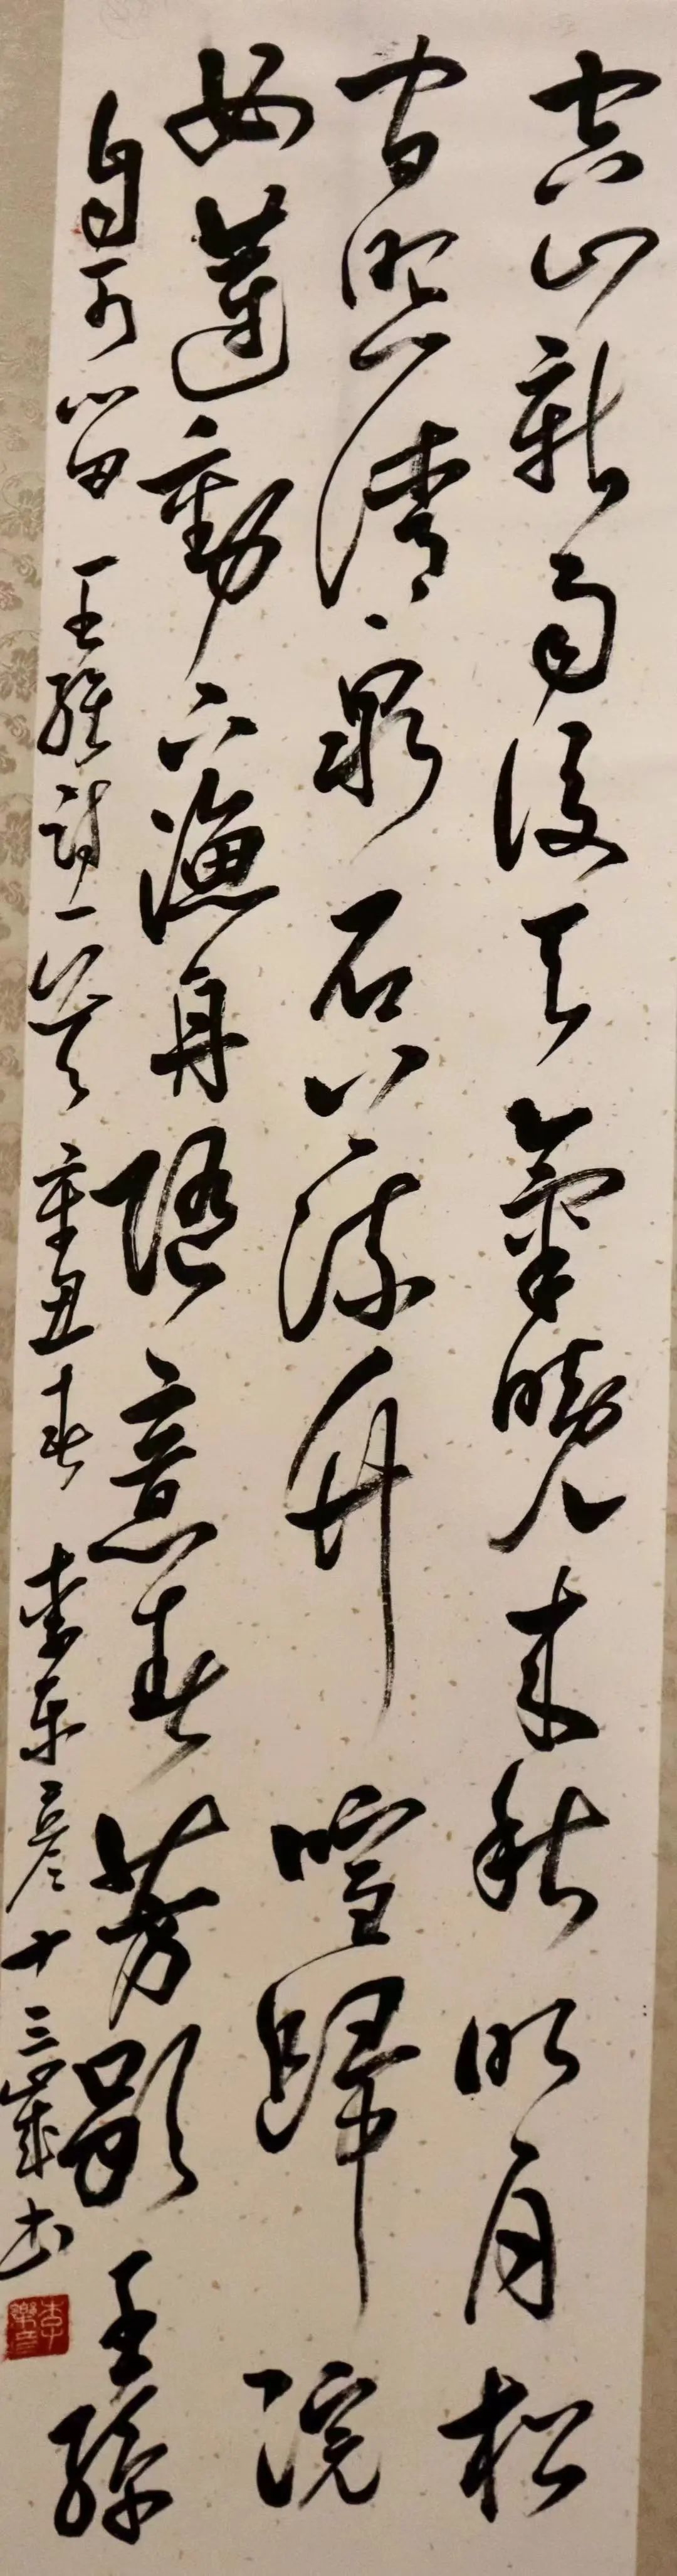 空山新雨後天氣晚來秋明月松
間照清泉石上流竹喧歸浣
女蓮動下漁舟隨意春芳歇王孫
自可留 王維詩一首 辛丑春 李乐彦十三歲书
李樂彦